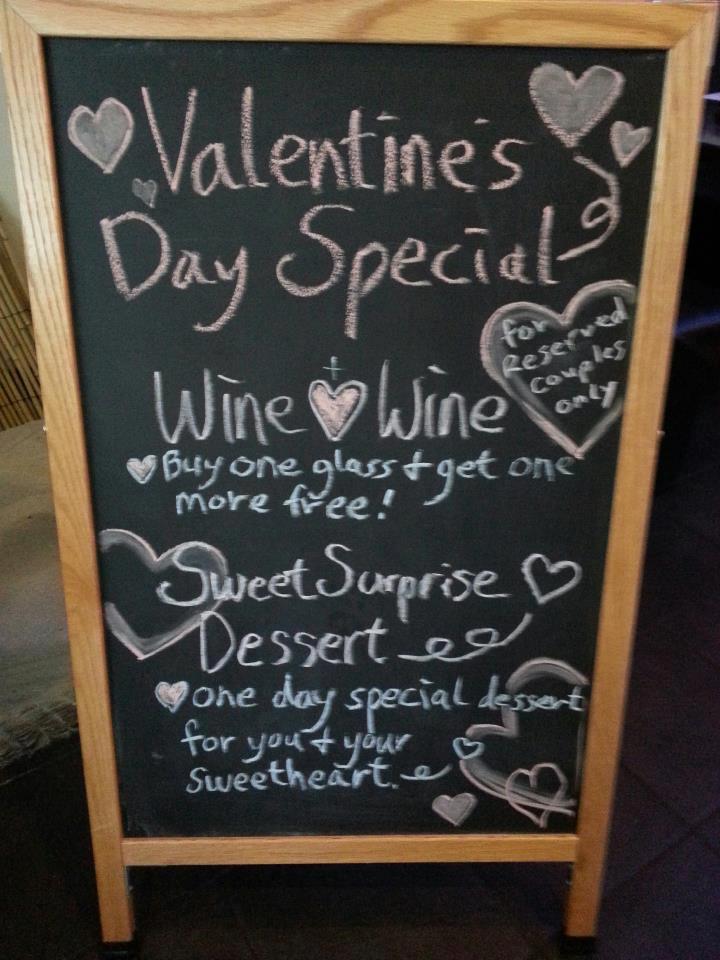 Valentine's
Day Special
for
Reserved
couples
only
Wine + Wine
Buy one glass + get one
more free!
Sweet Surprise
Dessert
one day special dessert
for you + your
sweetheart.